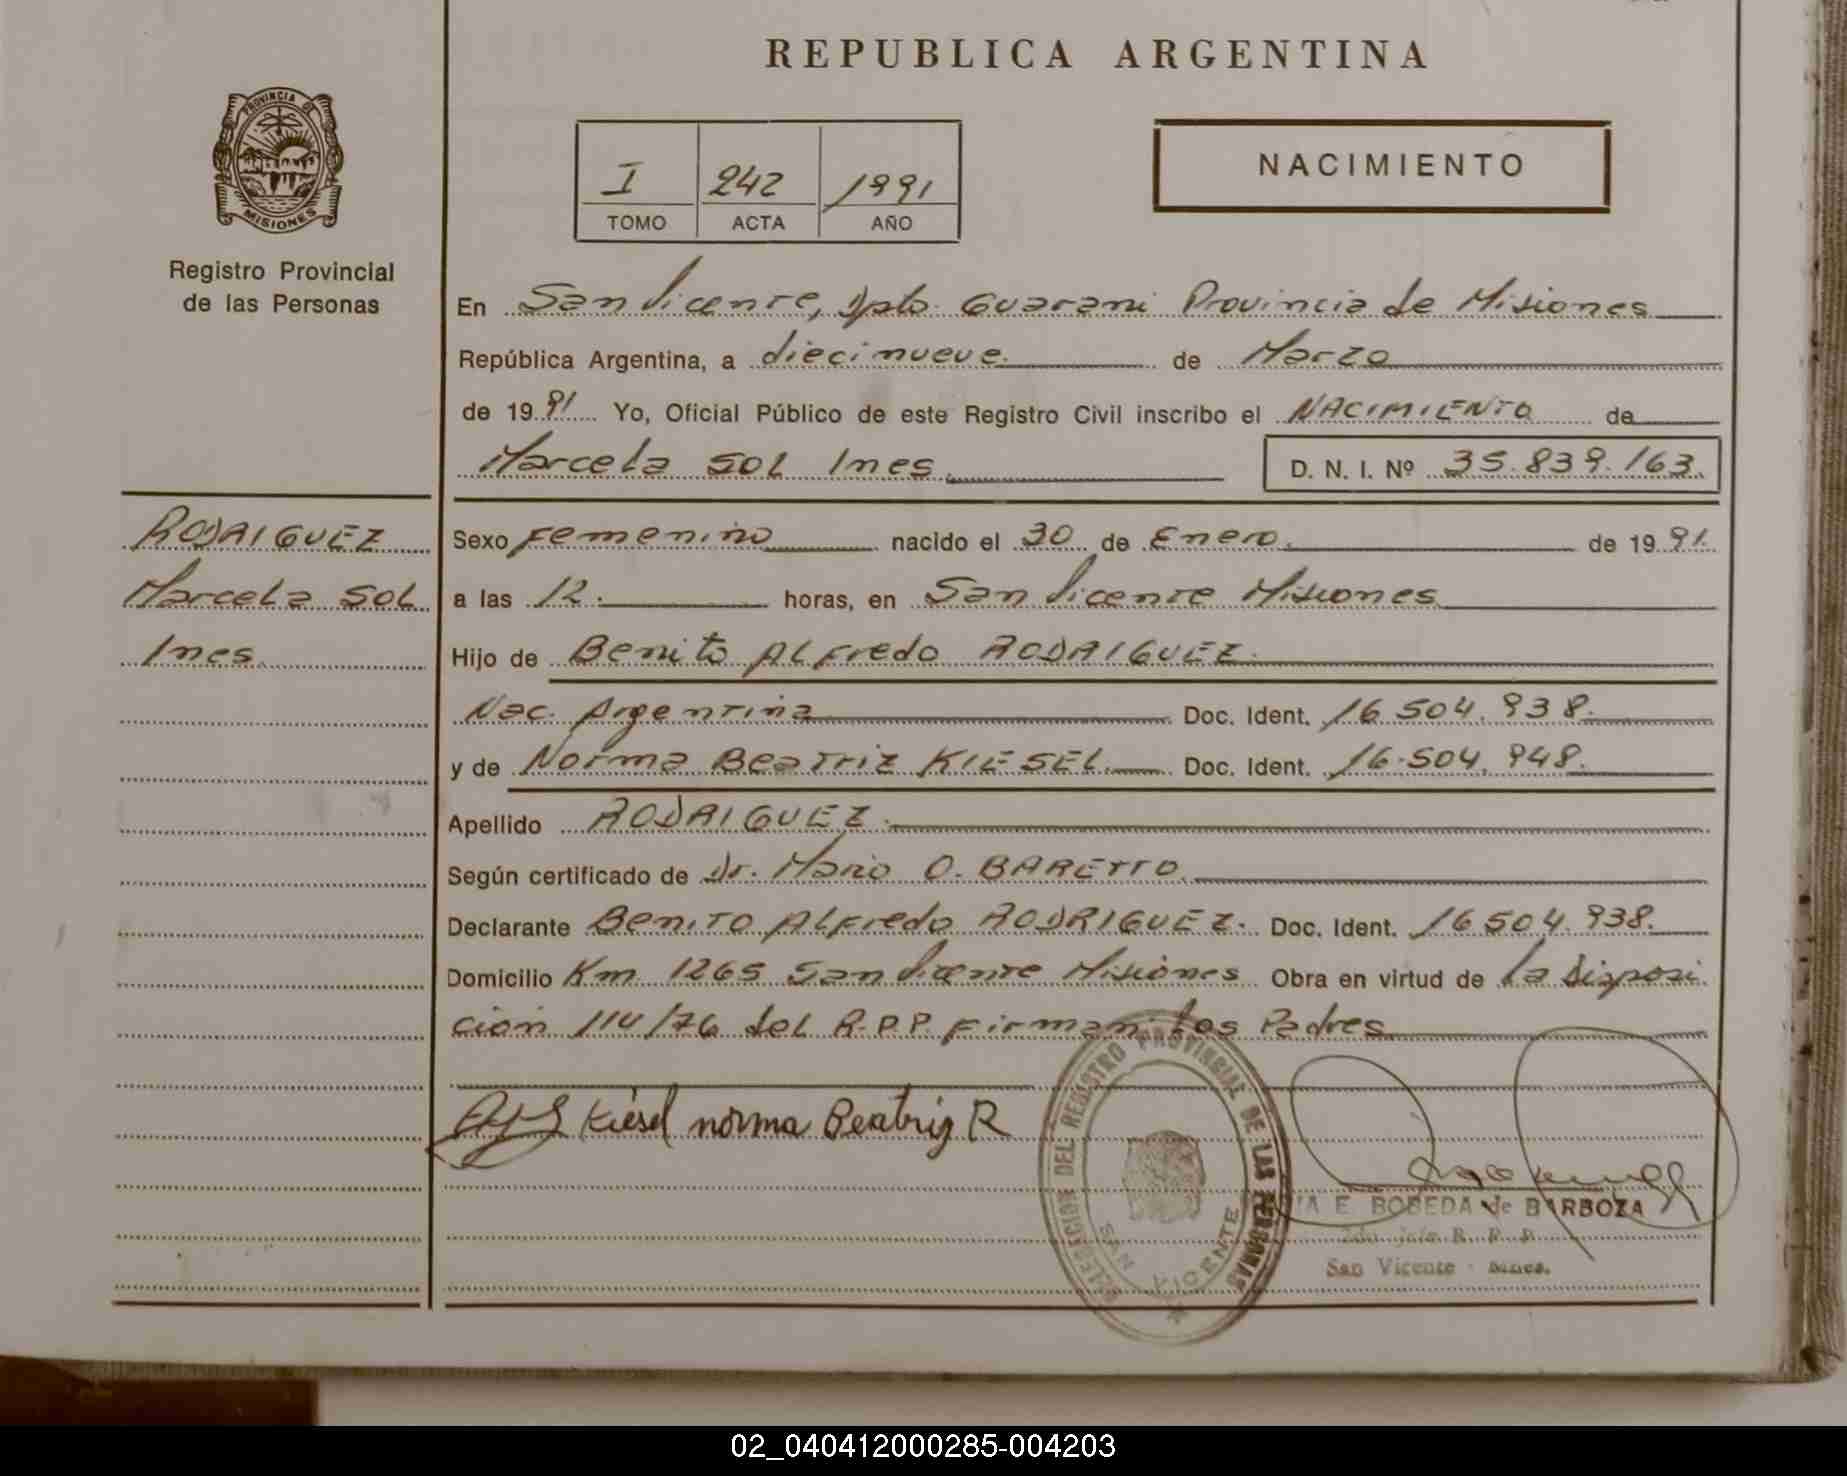 REPUBLICA ARGENTINA
PROVINCIA DE
MISIONES
Registro Provincial
de las Personas
I 242 1991
TOMO ACTA AÑO
NACIMIENTO
En San Vicente, Dpto. Guarani Provincia de Misiones
República Argentina, a diecinueve. de Marzo
de 19 91 Yo, Oficial Público de este Registro Civil inscribo el NACIMIENTO de
Marcela SOL Ines. D. N. I. Nº 35.839.163.
RODRIGUEZ
Marcela SOL
Ines.
Sexo Femenino nacido el 30 de Enero. de 19 91.
a las 12. horas, en San Vicente Misiones
Hijo de Benito ALFredo RODRIGUEZ.
Nac. Argentina Doc. Ident. 16 504. 938.
y de Norma Beatriz KIESEL. Doc. Ident. 16.504. 948.
Apellido RODRIGUEZ.
Según certificado de Dr. Mario O. BARETTO.
Declarante Benito ALFredo RODRIGUEZ. Doc. Ident. 16 504. 938.
Domicilio Km 1265 San Vicente Misiones. Obra en virtud de la Disposi
cion 114/76 del R.P.P. Firman los Padres
Kiesel norma Beatriz R
DELEGACION DEL REGISTRO PROVINCIAL DE LAS PERSONAS
SAN VICENTE
E. BOBEDA de BARBOZA
R. P. P.
San Vicente - Mnes.
02_040412000285-004203